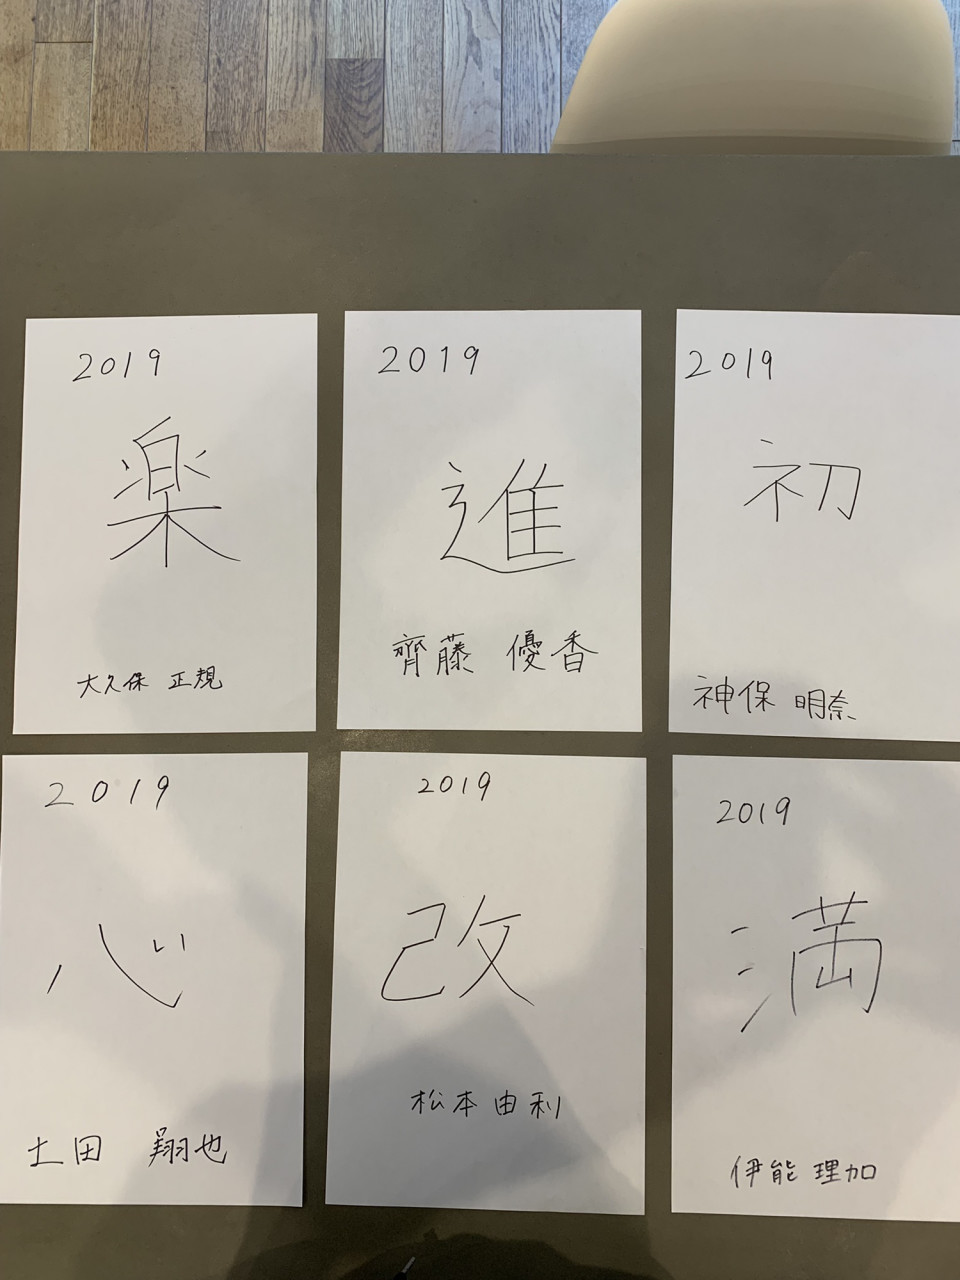 2019
楽
大久保 正規
2019
進
齊藤 優香
2019
初
神保 明奈
2019
心
土田 翔也
2019
改
松本 由利
2019
満
伊能 理加